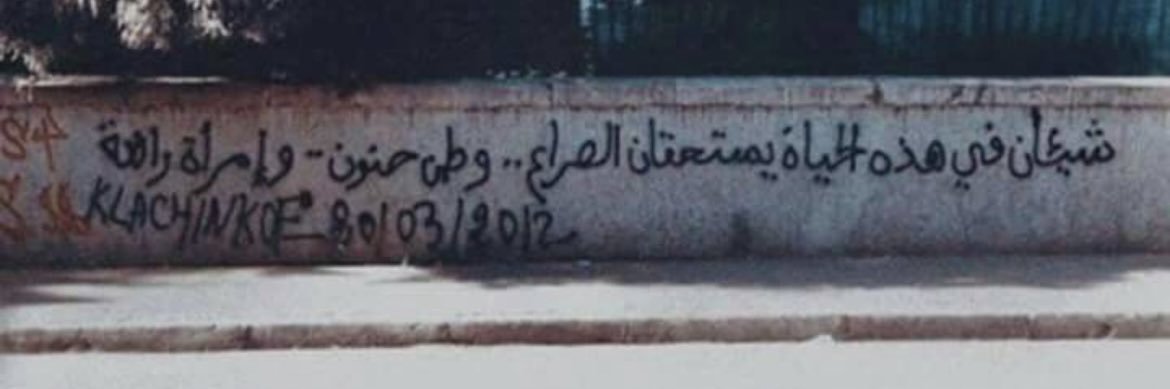 شيئان في هذه الحياة يستحقان الصراع.. وطن حنون-- وإمرأة رائعة
KLACHINKOF 30/03/2012
S4